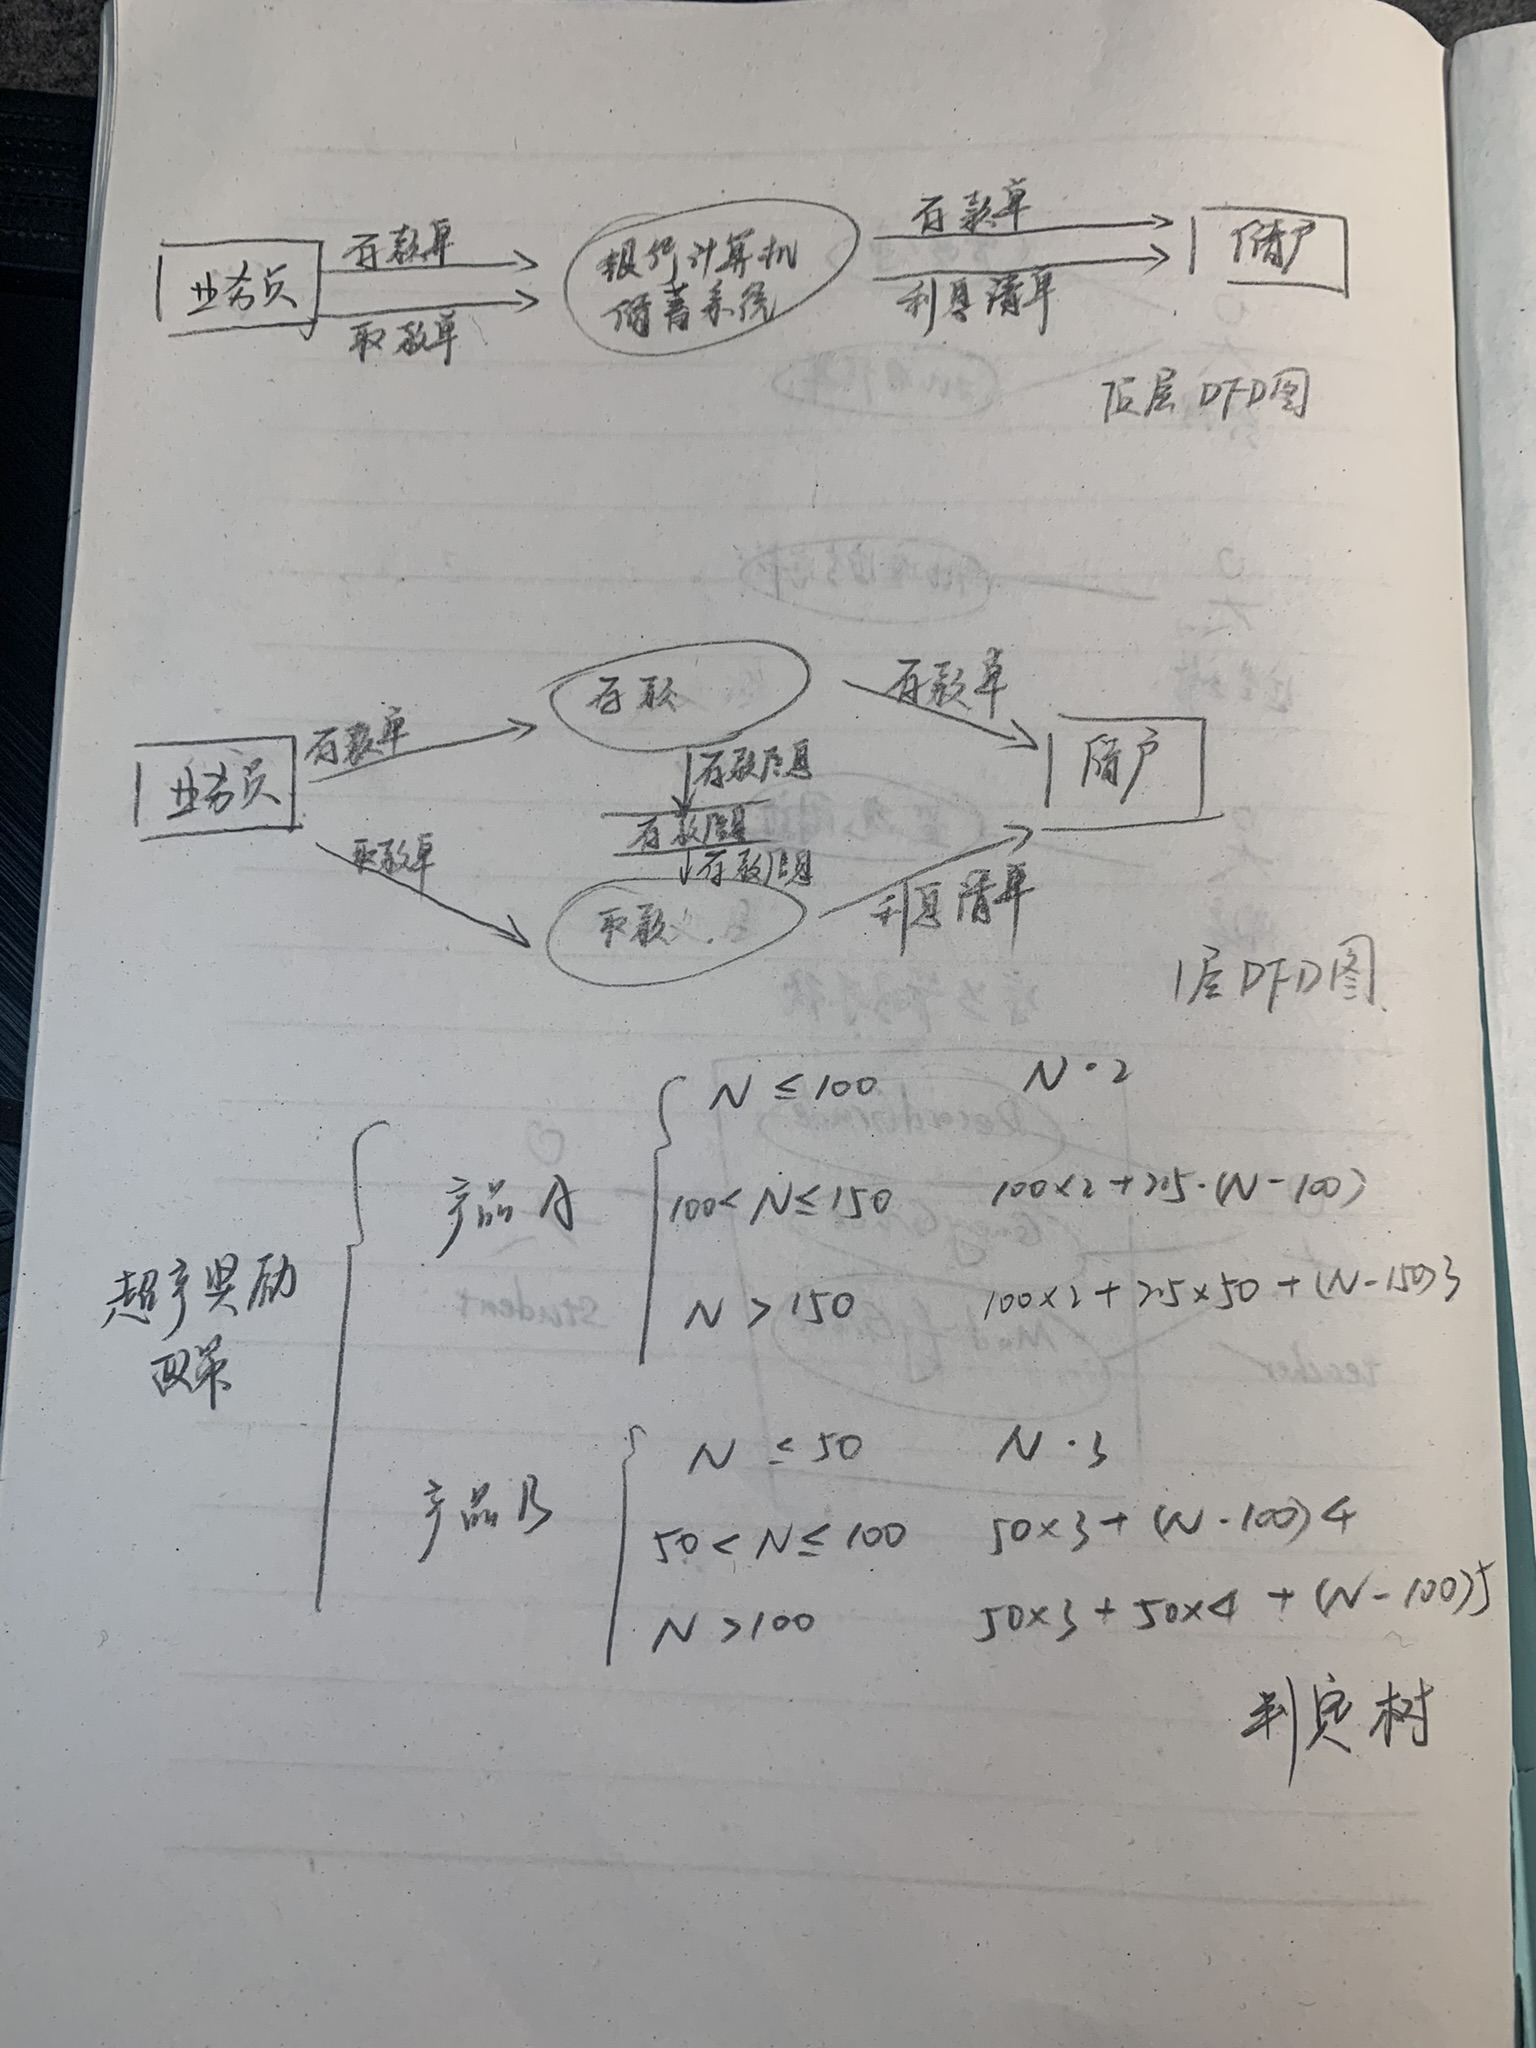 业务员
存款单
取款单
银行计算机
储蓄系统
存款单
利息清单
储户
DFD图
业务员
存款单
取款单
存款
存款信息
存款信息
存款信息
取款
存款单
利息清单
储户
1层DFD图
超产奖励
政策
产品A
N ≤ 100 N·2
100 < N ≤ 150 100×2+2.5·(N-100)
N > 150 100×2+2.5×50+(N-150)3
产品B
N ≤ 50 N·3
50 < N ≤ 100 50×3+(N-100)4
N > 100 50×3+50×4+(N-100)5
判定树